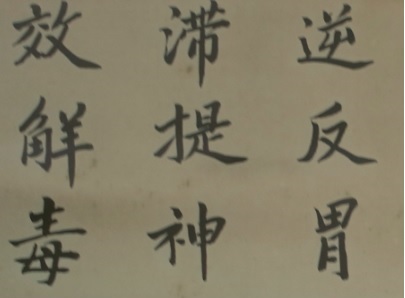 逆反胃
滞提神
效解毒